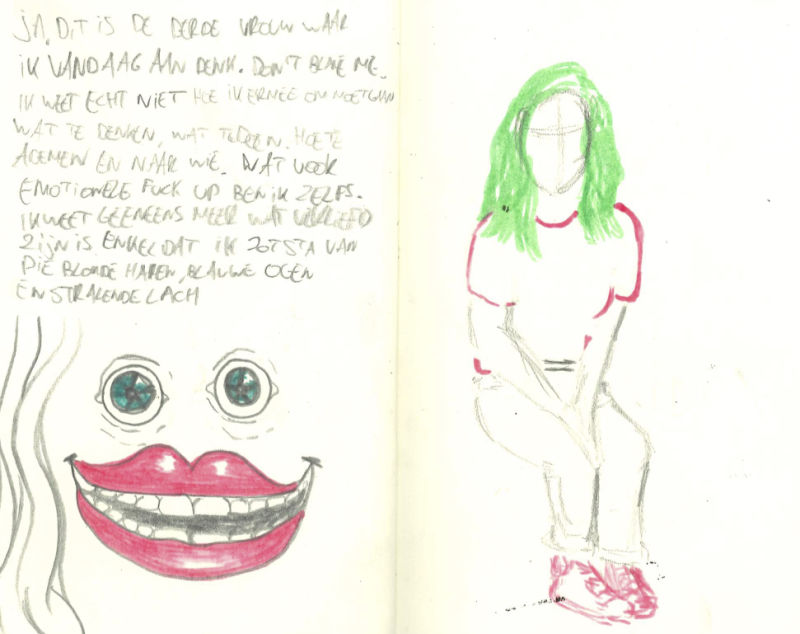 JA, DIT IS DE DERDE VROUW WAAR
IK VANDAAG AAN DENK. DON'T BLAME ME.
IK WEET ECHT NIET HOE IK ERMEE OM MOET GAAN
WAT TE DENKEN, WAT TE DOEN, HOE TE
ADEMEN EN NAAR WIE. WAT VOOR
EMOTIONELE FUCK UP BEN IK ZELFS.
IK WEET GEENEENS MEER WAT VERLIEFD
ZIJN IS. ENKEL DAT IK ZOT STA VAN
DIE BLONDE HAREN, BLAUWE OGEN
EN STRALENDE LACH